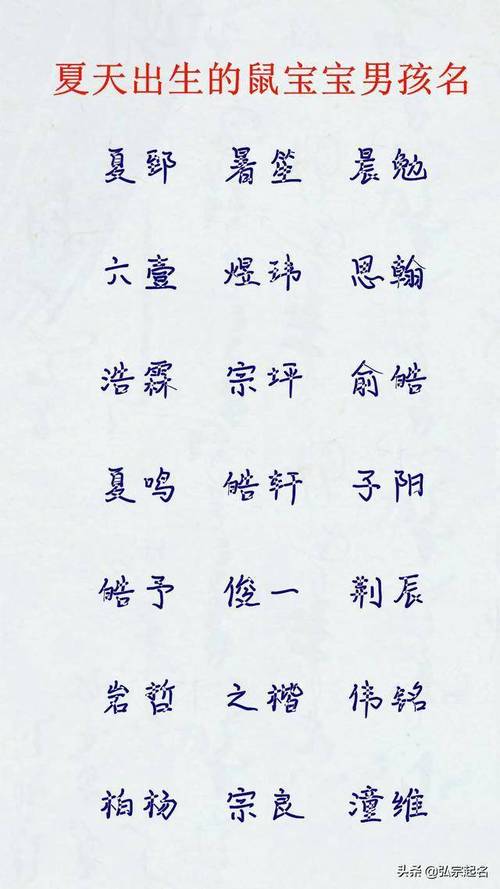 夏天出生的鼠宝宝男孩名
夏郅 暑笙 晨勉
六壹 煜玮 思翰
浩霖 宗坪 俞皓
夏鸣 皓轩 子阳
皓予 俊一 荆辰
岩哲 之楷 伟铭
柏杨 宗良 潼维
头条 @弘宗起名